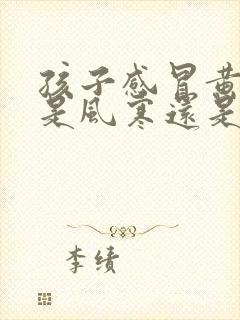 孩子感冒黃
是風寒還是
李绩